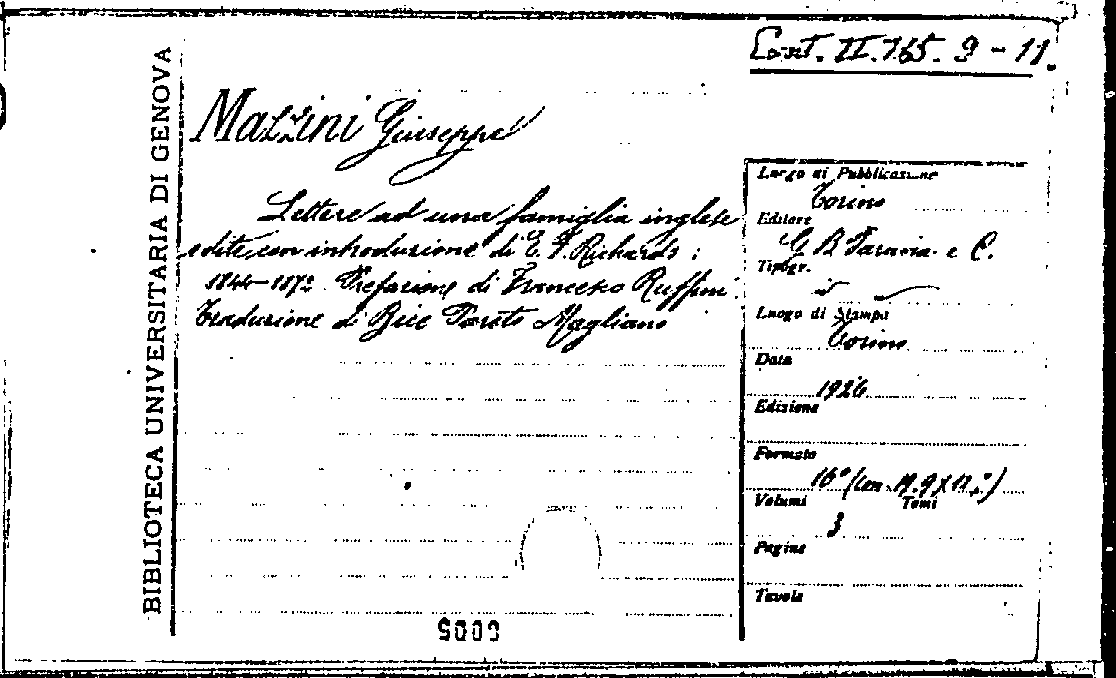 Cont. II. 165. 9 - 11.
BIBLIOTECA UNIVERSITARIA DI GENOVA
Mazzini Giuseppe
Lettere ad una famiglia inglese
edite con introduzione di E. F. Richards :
1844-1872 Prefazione di Francesco Ruffini.
Traduzione di Bice Pareto Magliano
Luogo di Pubblicazione
Torino
Editore
G B Paravia e C.
Tipogr.
id
Luogo di Stampa
Torino
Data
1926
Edizione
Formato
16° (cm. 19.9 X 12.)
Volumi Tomi
3
Pagine
Tavole